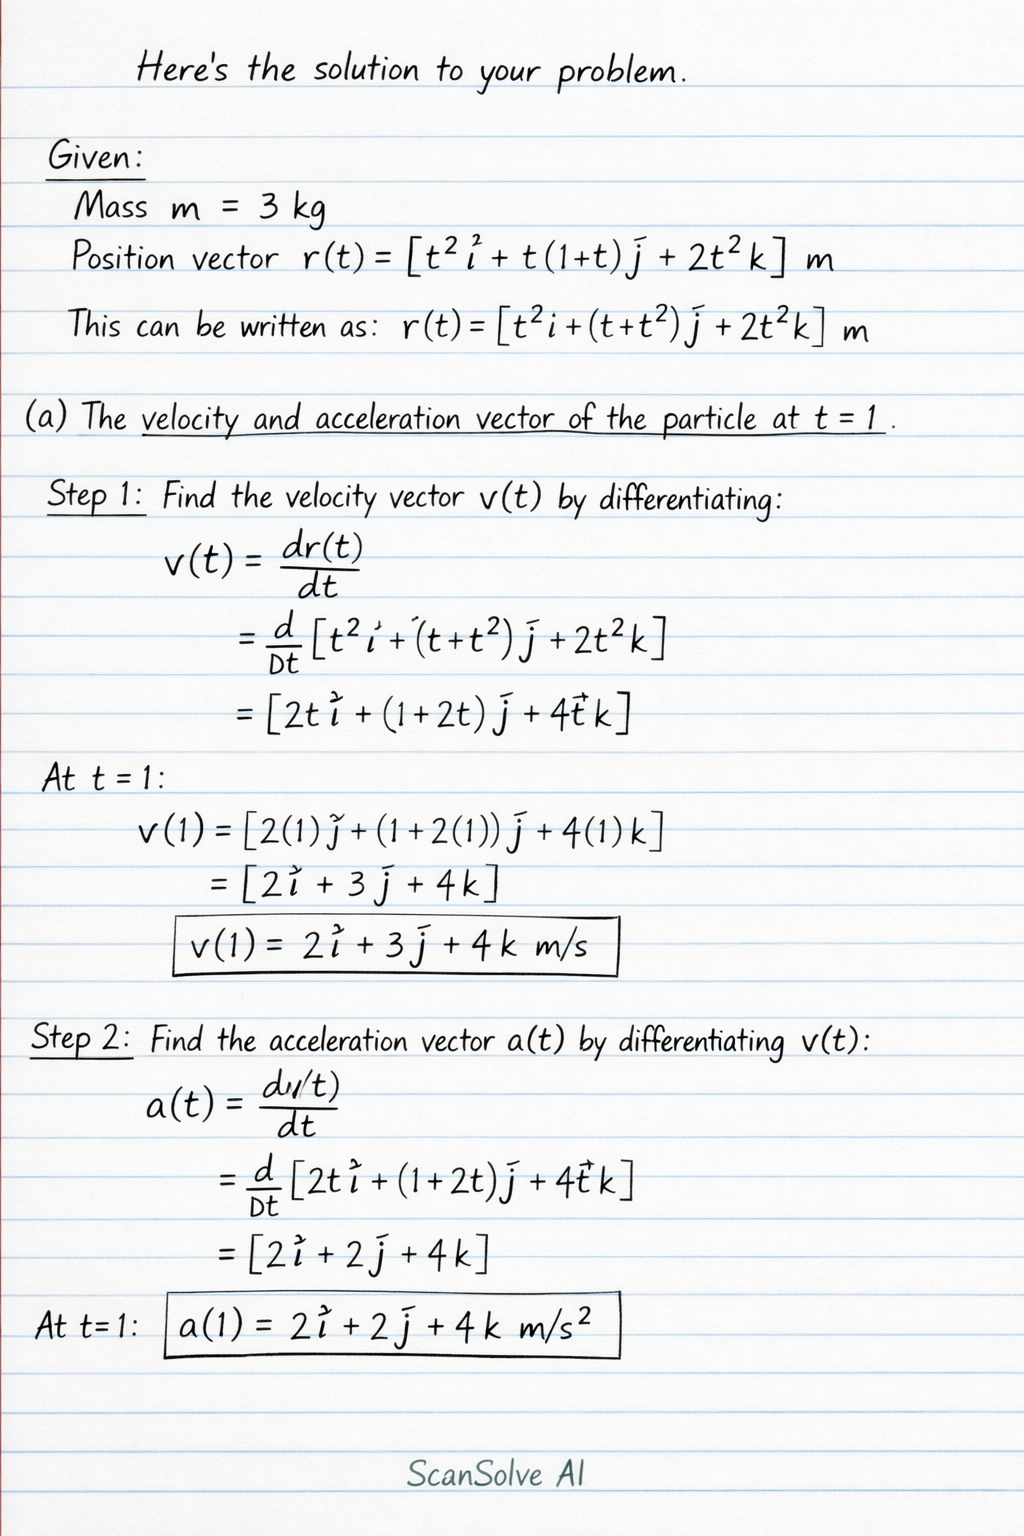 Here's the solution to your problem.
Given:
Mass m = 3 kg
Position vector r(t) = [t² i² + t(1+t) j̄ + 2t² k] m
This can be written as: r(t) = [t² i + (t+t²) j̄ + 2t² k] m
(a) The velocity and acceleration vector of the particle at t = 1.
Step 1: Find the velocity vector v(t) by differentiating:
v(t) = dr(t)/dt
= d/Dt [t² i + (t+t²) j̄ + 2t² k]
= [2t i² + (1+2t) j̄ + 4t⃗ k]
At t = 1:
v(1) = [2(1) j̆ + (1+2(1)) j̄ + 4(1) k]
= [2i² + 3 j̄ + 4k]
v(1) = 2i² + 3 j̄ + 4k m/s
Step 2: Find the acceleration vector a(t) by differentiating v(t):
a(t) = dv/t)/dt
= d/Dt [2t i² + (1+2t) j̄ + 4t⃗ k]
= [2i² + 2 j̄ + 4k]
At t=1: a(1) = 2i² + 2 j̄ + 4k m/s²
ScanSolve AI